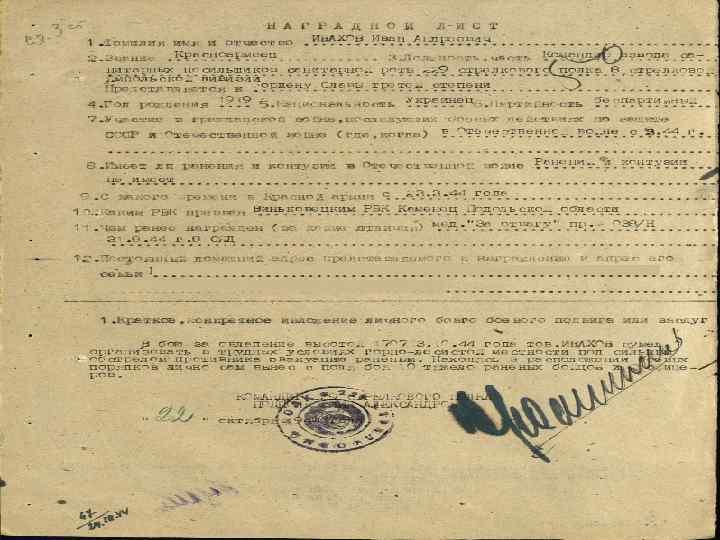 НАГРАДНОЙ ЛИСТ
1. Фамилия имя и отчество ИВАХОВ Иван Андреевич
2. Звание Красноармеец 3. Должность, часть Командир взвода са-
нитарных носильщиков санитарной роты 229 стрелкового полка 8 стрелковой
Ямпольской дивизии
Представляется к ордену Славы третей степени
4. Год рождения 1919 5. Национальность Украинец 6. Партийность беспартийный
7. Участие в гражданской войне, последующих боевых действиях по защите
СССР и Отечественной войне (где, когда) в Отечественной войне с 3.44 г.
8. Имеет ли ранения и контузии в Отечественной войне Ранений и контузии
не имеет
9. С какого времени в Красной армии с 23.3.44 года
10. Каким РВК призван Виньковецким РВК Каменец Подольской области
11. Чем ранее награжден (за какие отличия) мед. "За отвагу" пр. 038/Н
21.8.44 г. 8 СЯД
12. Постоянный домашний адрес представляемого к награждению и адрес его
семьи
1. Краткое, конкретное изложение личного боевого подвига или заслуг
В бою за овладение высотой 1707 3.10.44 года тов. ИВАХОВ сумел
организовать в трудных условиях горно-лесистой местности под сильным
обстрелом противника эвакуацию раненых. Находясь в расположении боевых
порядков лично сам вынес с поля боя 10 тяжело раненых бойцов и офице-
ров.
КОМАНДИР 229 СТРЕЛКОВОГО ПОЛКА
АЛЕКСАНДРО
" 22 " октября
47
24.10.44